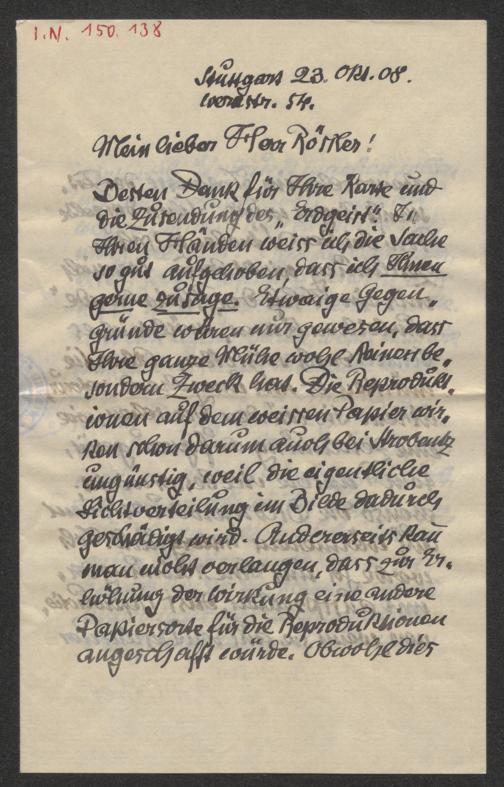 I.N. 150.138
Stuttgart 23. Okt. 08.
Werastr. 54.
Mein lieber Herr Rössler!
Besten Dank für Ihre Karte und
die Zusendung des "Erdgeist". In
Ihren Händen weiss ich die Sache
so gut aufgehoben, dass ich Ihnen
gerne zusage. Etwaige Gegen„
gründe wären nur gewesen, dass
Ihre ganze Mühe wohl keinen be„
sondern Zweck hat. Die Reprodukt„
ionen auf dem weissen Papier wir„
ken schon darum auch bei Strobentz
ungünstig, weil die eigentliche
Lichtverteilung im Bilde dadurch
geschädigt wird. Andererseits kan̄
man nicht verlangen, dass zur Er„
höhung der Wirkung eine andere
Papiersorte für die Reproduktionen
angeschafft würde. Obwohl dies